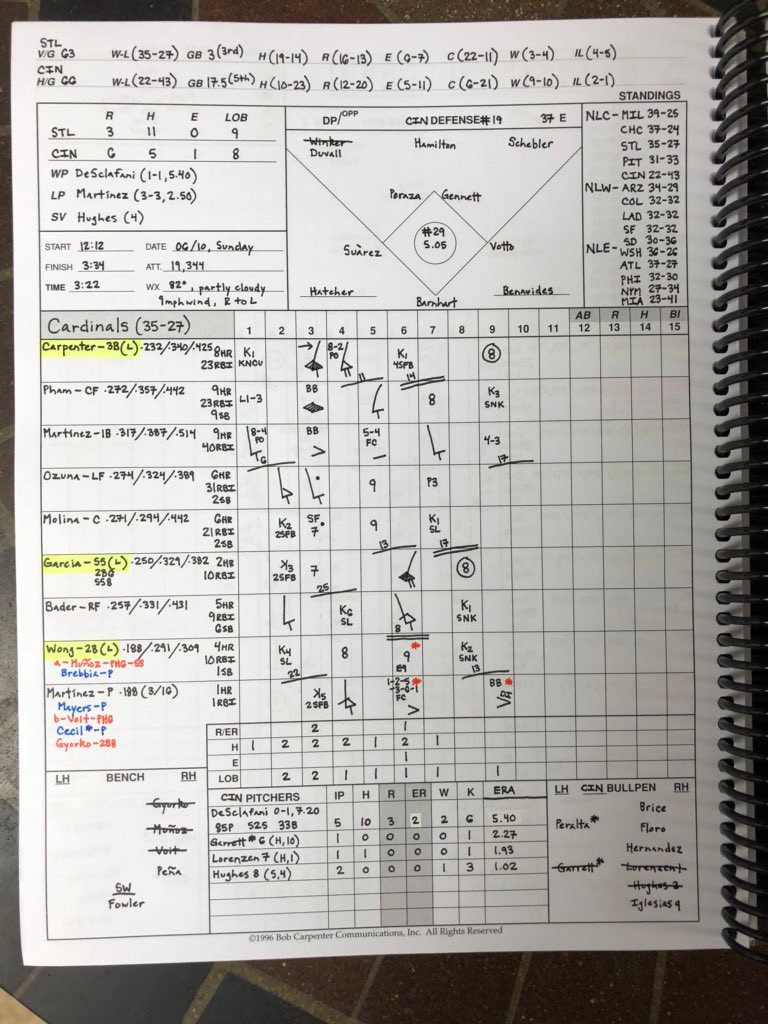 STL
V/G 63 W-L(35-27) GB 3(3rd) H(19-14) R(16-13) E(6-7) C(22-11) W(3-4) IL(4-5)
CIN
H/G 66 W-L(22-43) GB 17.5(5th) H(10-23) R(12-20) E(5-11) C(6-21) W(9-10) IL(2-1)
STANDINGS
R H E LOB
STL 3 11 0 9
CIN 6 5 1 8
WP DeSclafani (1-1, 5.40)
LP Martinez (3-3, 2.50)
SV Hughes (4)
START 12:12 DATE 06/10, Sunday
FINISH 3:34 ATT. 19,344
TIME 3:22 WX 82°, partly cloudy
9mph wind, R to L
DP/OPP CIN DEFENSE #19 37 E
Winker Hamilton Schebler
Duvall
Peraza Gennett
#29
5.05
Suàrez Votto
Hatcher Barnhart Benavides
NLC- MIL 39-25
CHC 37-24
STL 35-27
PIT 31-33
CIN 22-43
NLW- ARZ 34-29
COL 32-32
LAD 32-32
SF 32-32
SD 30-36
NLE- WSH 36-26
ATL 37-27
PHI 32-30
NYM 27-34
MIA 23-41
Cardinals (35-27) 1 2 3 4 5 6 7 8 9 10 11 AB 12 R 13 H 14 BI 15
Carpenter-3B(L) .232/.340/.425 8HR K1 → 8-2 K1 8
23RBI KNCU PO 4SFB
11 14
Pham-CF .272/.357/.442 9HR L1-3 BB 8 K3
23RBI SNK
9SB
Martinez-1B .317/.387/.514 9HR 8-4 BB 5-4 4-3
40RBI PO FC
6 17
Ozuna-LF .274/.324/.389 6HR 9 P3
31RBI
2SB
Molina-C .271/.294/.442 6HR K2 SF 9 K1
21RBI 2SFB 7 SL
2SB 13 17
Garcia-SS(L) .250/.329/.382 2HR K3 7 8
2BG 10RBI 2SFB
SSB 25
Bader-RF .257/.331/.431 5HR K6 K1
9RBI SL SNK
6SB 8
Wong-2B(L) .188/.291/.309 4HR K4 8 9 K2
a-Muñoz-PHG-SS 10RBI SL E9 SNK
Brebbia-P 1SB 22 13
Martínez-P .188 (3/16) 1HR K5 1-2-5 BB
Mayers-P 1RBI 2SFB -3-6-1
b-Voit-PHG FC
Cecil*-P
Gyorko-2SB
R/ER 2 1
H 1 2 2 2 1 2 1
E 1
LOB 2 2 1 1 1 1 1
LH BENCH RH
Gyorko
Muñoz
Voit
Peña
SW
Fowler
CIN PITCHERS IP H R ER W K ERA
DeSclafani 0-1, 7.20
85P 52S 33B 5 10 3 2 2 6 5.40
Garrett* 6 (H,10) 1 0 0 0 0 1 2.27
Lorenzen 7 (H,1) 1 1 0 0 0 1 1.93
Hughes 8 (S,4) 2 0 0 0 1 3 1.02
LH CIN BULLPEN RH
Brice
Peralta* Floro
Hernandez
Garrett* Lorenzen
Hughes
Iglesias
©1996 Bob Carpenter Communications, Inc. All Rights Reserved